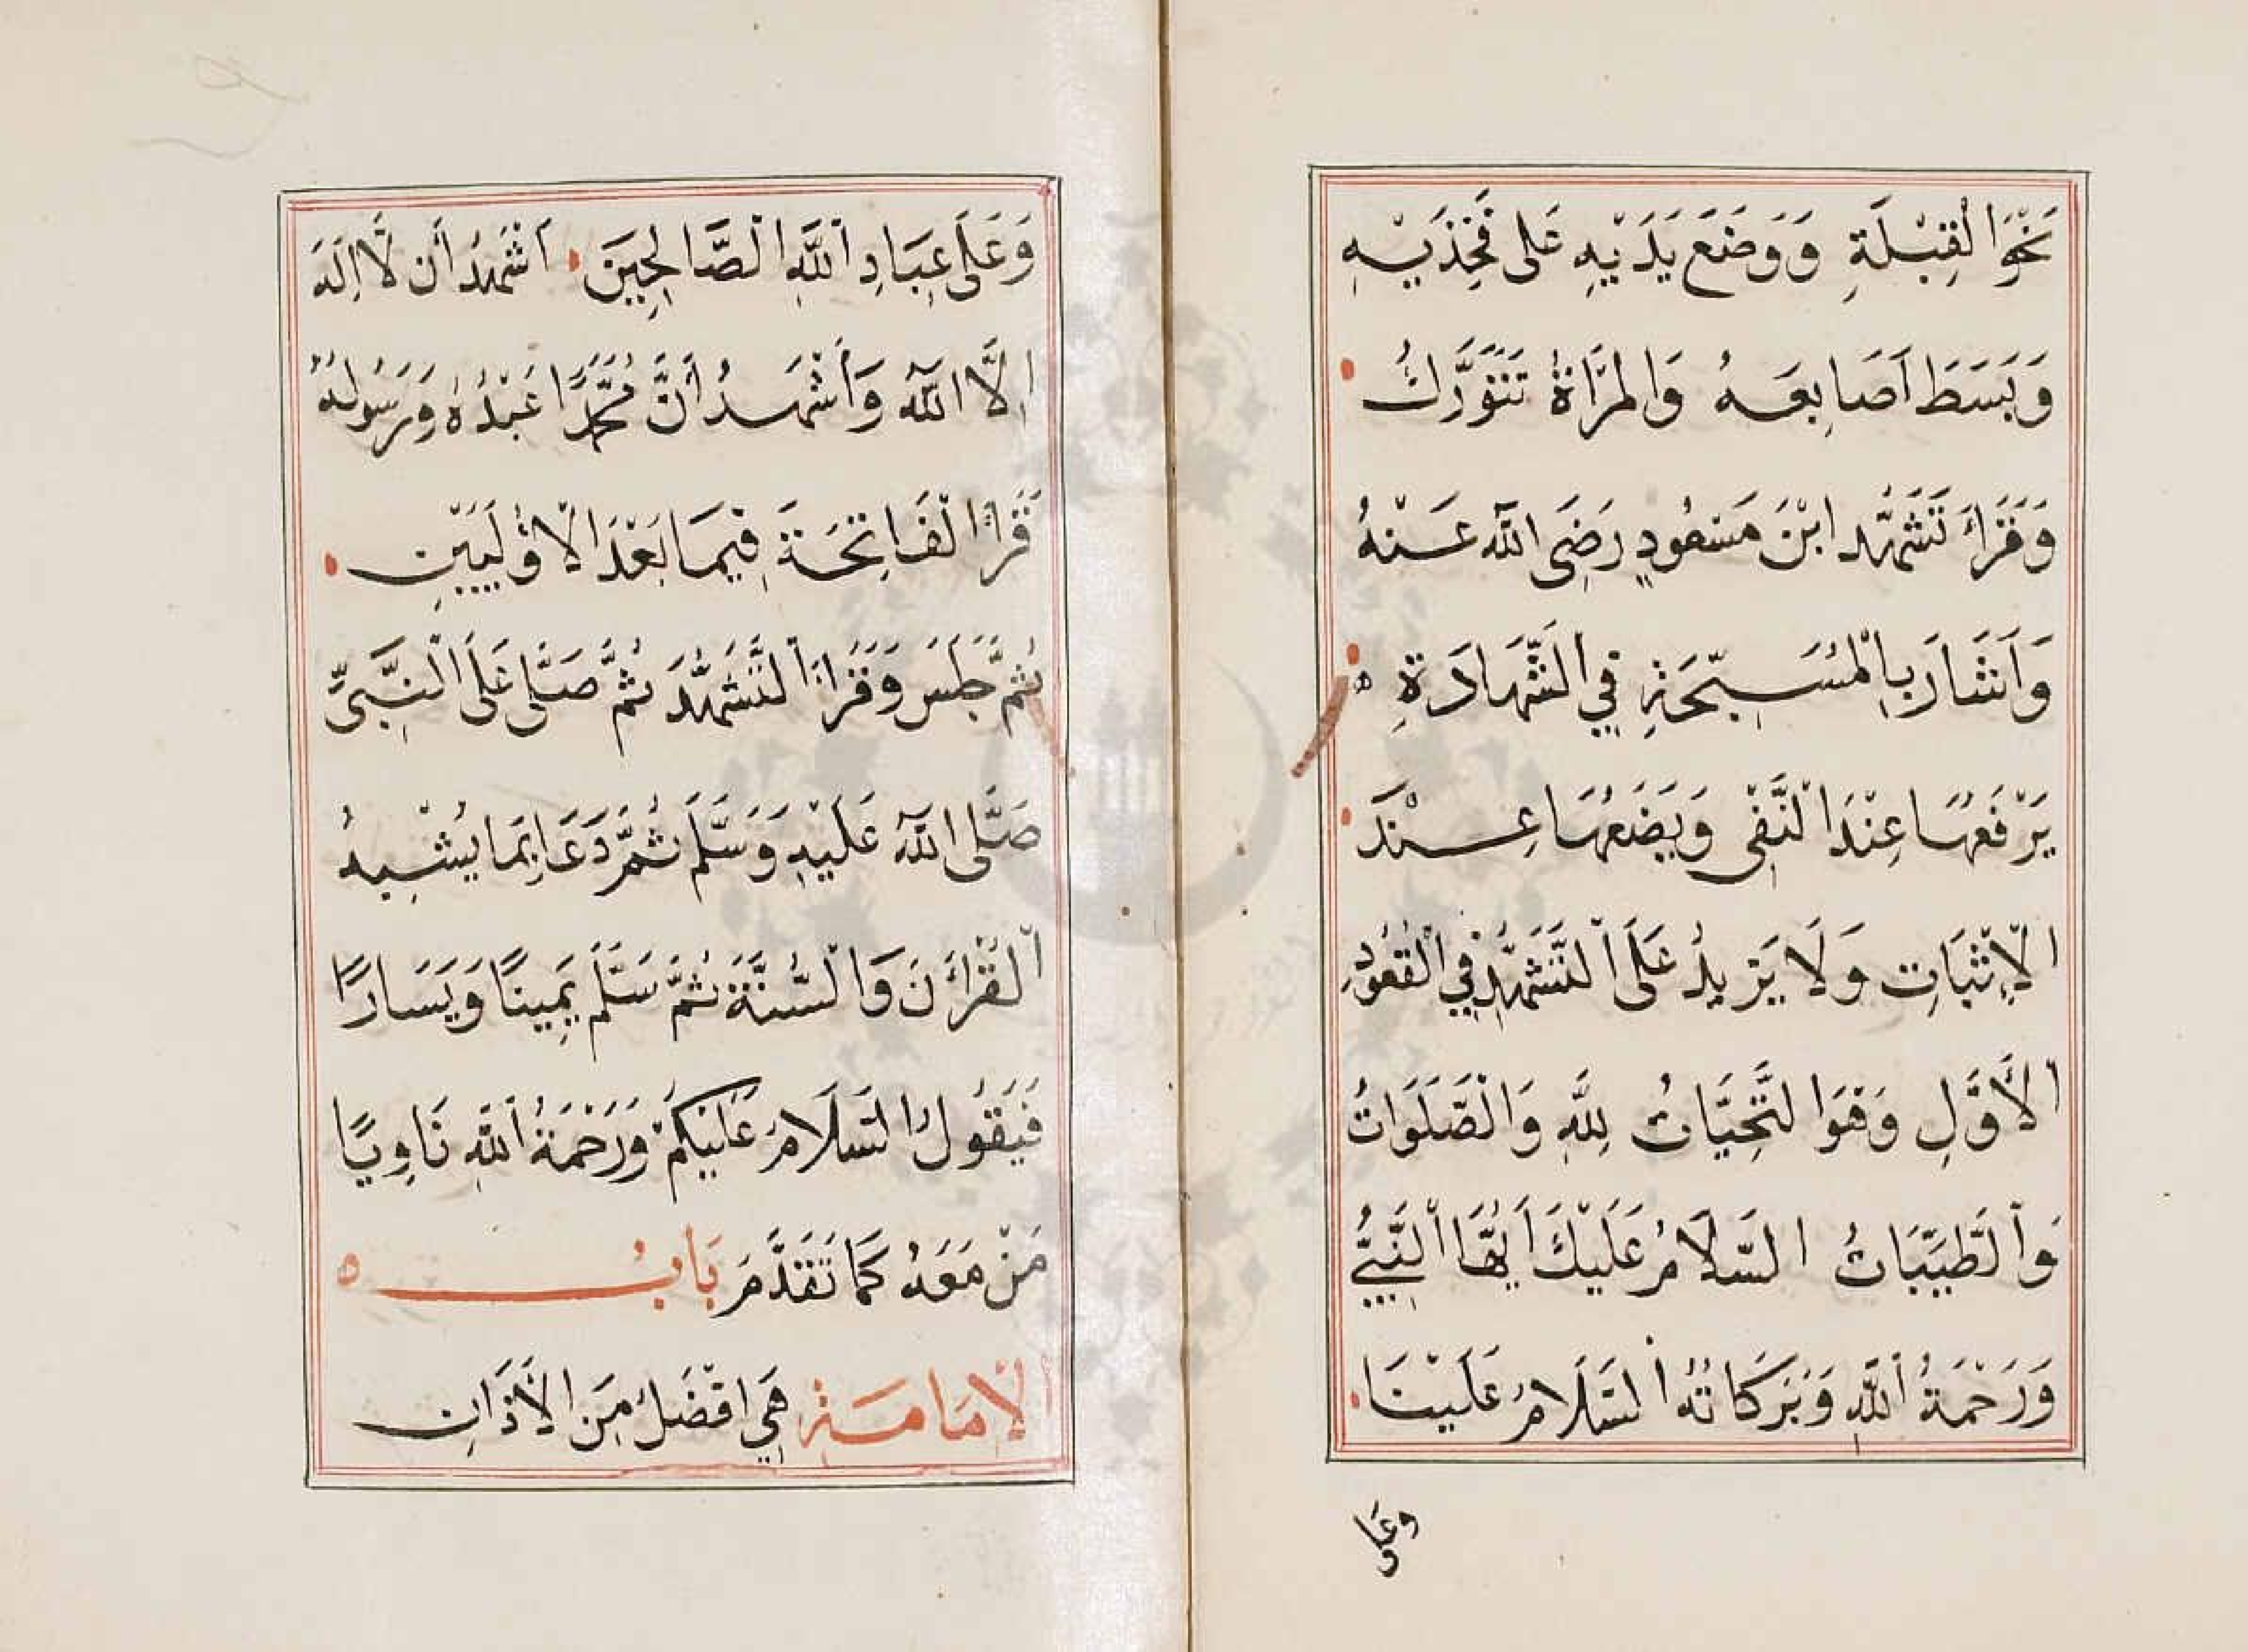 نَحْوَ الْقِبْلَةِ وَوَضَعَ يَدَيْهِ عَلٰى فَخِذَيْهِ
وَبَسَطَ اَصَابِعَهُ وَالْمَرْاَةُ تَتَوَرَّكُ
وَقَرَاَ تَشَهُّدَ ابْنِ مَسْعُودٍ رَضِىَ اللّٰه عَنْهُ
وَاَشَارَ بِالْمُسَبِّحَةِ فِي الشَّهَادَةِ
يَرْفَعُهَا عِنْدَ النَّفْىِ وَيَضَعُهَا عِنْدَ
الْاِثْبَاتِ وَلَا يَزِيدُ عَلَى التَّشَهُّدِ فِي الْقُعُودِ
الْاَوَّلِ وَهُوَ التَّحِيَّاتُ لِلّٰهِ وَالصَّلَوَاتُ
وَالطَّيِّبَاتُ السَّلَامُ عَلَيْكَ اَيُّهَا النَّبِيُّ
وَرَحْمَةُ اللّٰهِ وَبَرَكَاتُهُ السَّلَامُ عَلَيْنَا
وعلى
وَعَلَى عِبَادِ اللّٰهِ الصَّالِحِينَ اَشْهَدُ اَنْ لَا اِلٰهَ
اِلَّا اللّٰه وَاَشْهَدُ اَنَّ مُحَمَّدًا عَبْدُهُ وَرَسُولُهُ
قَرَاَ الْفَاتِحَةَ فِيمَا بَعْدَ الْاُولَيَيْنِ
ثُمَّ جَلَسَ وَقَرَاَ التَّشَهُّدَ ثُمَّ صَلَّى عَلَى النَّبِىِّ
صَلَّى اللّٰه عَلَيْهِ وَسَلَّمَ ثُمَّ دَعَا بِمَا يُشْبِهُ
الْقُرْاٰنَ وَالسُّنَّةَ ثُمَّ سَلَّمَ يَمِينًا وَيَسَارًا
فَيَقُولُ السَّلَامُ عَلَيْكُمْ وَرَحْمَةُ اللّٰهِ نَاوِيًا
مَنْ مَعَهُ كَمَا تَقَدَّمَ بَابُ ه
الْاِمَامَةِ هِيَ اَفْضَلُ مِنَ الْاَذَانِ